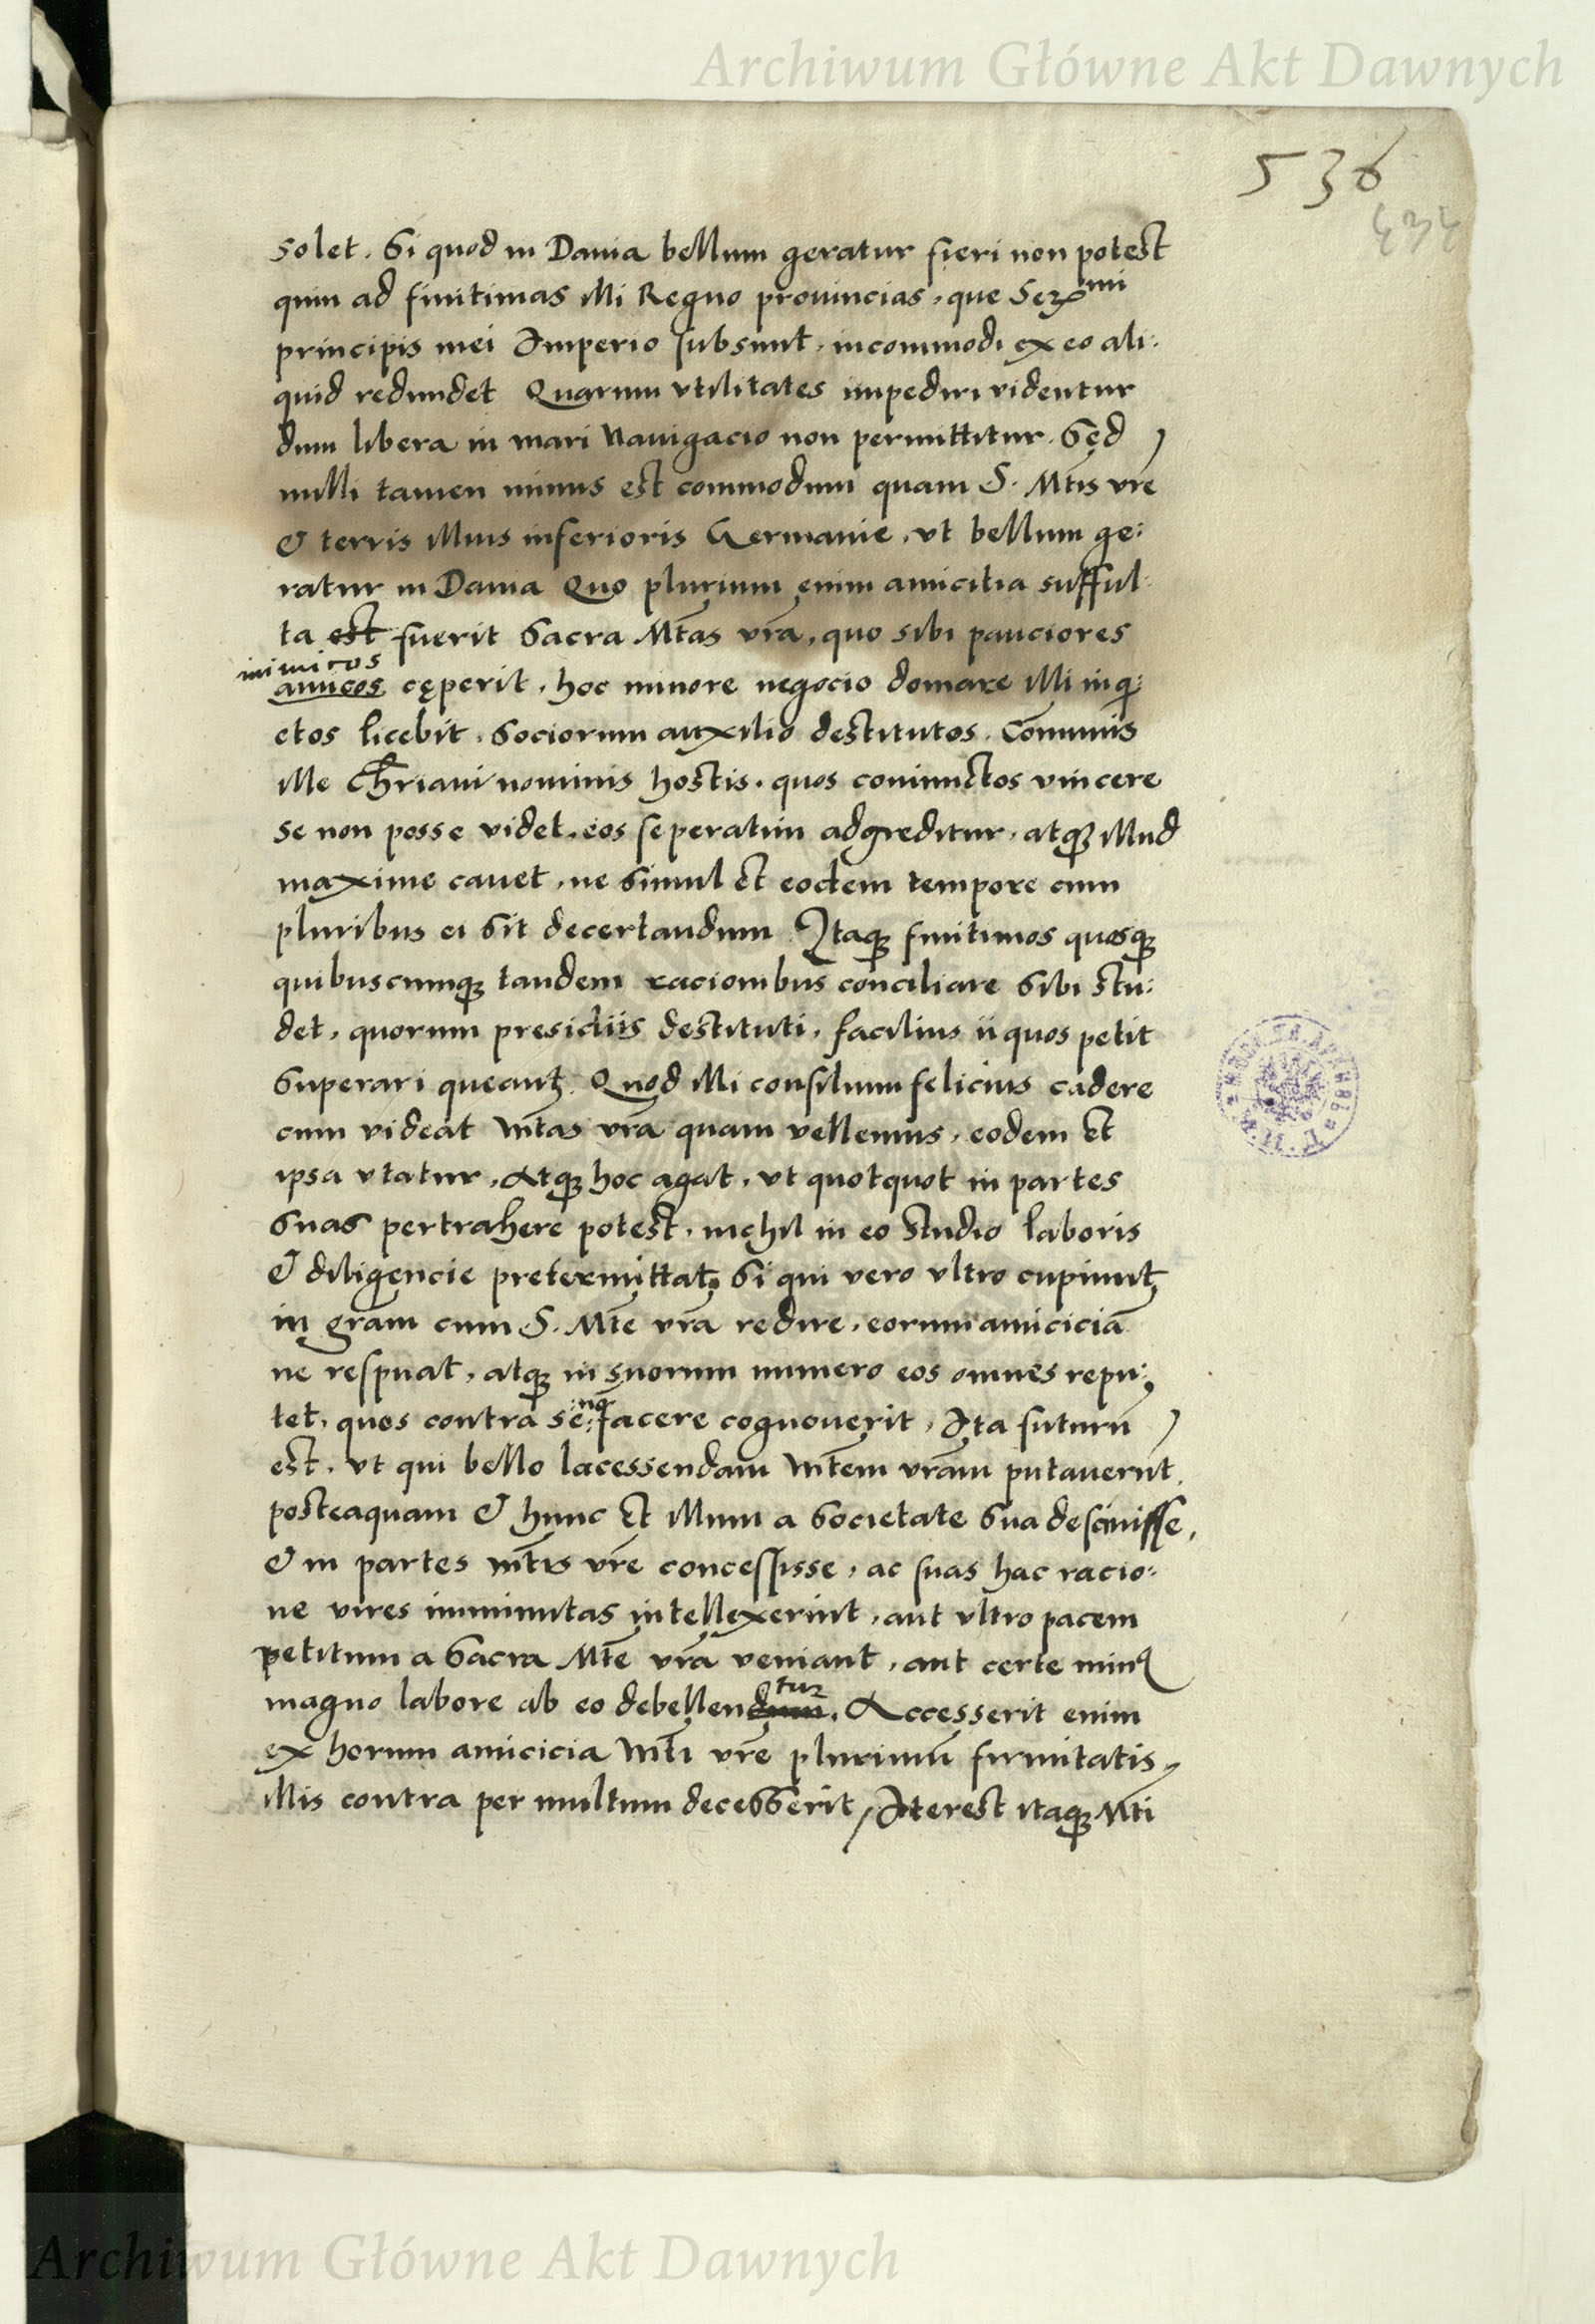 Archiwum Główne Akt Dawnych
536
solet. Si quod in Dania bellum geratur fieri non potest
quin ad finitimas illi Regno prouincias, que Ser^mi
principis mei Imperio subsunt, incommodi ex eo ali:
quid redundet Quarum vtilitates impediri videntur
dum libera in mari Nauigacio non permittitur. Sed
nulli tamen minus est commodum quam S. Mtis vre
& terris illius inferioris Germanie, vt bellum ge:
ratur in Dania Quo plurium enim amicitia suffful:
ta est fuerit Sacra Mtas vra, quo sibi pauciores
inimicos
amicos cęperit, hoc minore negocio domare illi inq:
etos licebit, Sociorum auxilio destitutos. Comunis
ille Chriani nominis hostis, quos coniunctos vincere
se non posse videt, eos seperatim adgreditur, atq illud
maxime cauet, ne Simul et eodem tempore cum
pluribus ei sit decertandum Itaq finitimos quosq
quibuscumq tandem racionibus conciliare Sibi stu:
det, quorum presidiis destituti, facilius ii quos petit
Superari queant. Quod illi consilium felicius cadere
cum videat Mtas vra quam vellemus, eodem et
ipsa vtatur, Atq hoc agat, vt quotquot in partes
Suas pertrahere potest, nichil in eo studio laboris
& diligencie pretermittat. Si qui vero vltro cupiunt
in gram cum S. Mte vra redire, eorum amiciciā
ne respuat, atq in suorum numero eos omnes repu:
tet, quos contra se nō facere cognouerit, Ita futurū
est, vt qui bello lacessendam Mtem vram putauerint,
posteaquam & hunc et illum a Societate Sua desciuisse,
& in partes Mtis vre concessisse, ac suas hac racio:
ne vires imminutas intellexerint, aut vltro pacem
petitum a Sacra Mte vra veniant, aut certe min9
tur
magno labore ab eo debellendum. Accesserit enim
ex horum amicicia Mti vre plurimū firmitatis,
illis contra per multum decesserit, Interest itaq Mti
Archiwum Główne Akt Dawnych